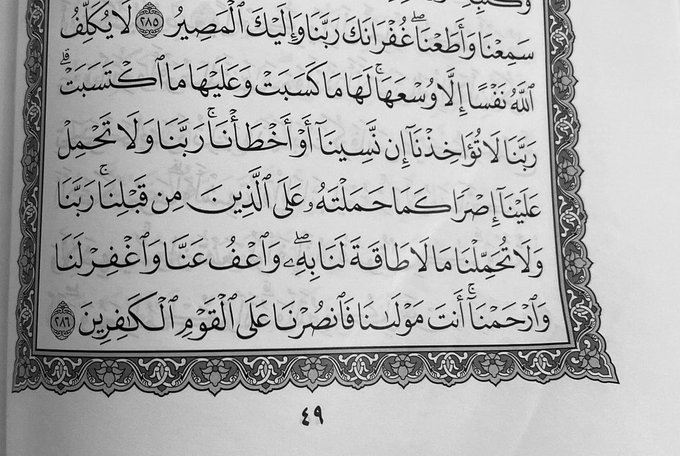 سَمِعْنَا وَأَطَعْنَا ۖ غُفْرَانَكَ رَبَّنَا وَإِلَيْكَ ٱلْمَصِيرُ ٢٨٥ لَا يُكَلِّفُ
ٱللَّهُ نَفْسًا إِلَّا وُسْعَهَا ۚ لَهَا مَا كَسَبَتْ وَعَلَيْهَا مَا ٱكْتَسَبَتْ ۗ
رَبَّنَا لَا تُؤَاخِذْنَآ إِن نَّسِينَآ أَوْ أَخْطَأْنَا ۚ رَبَّنَا وَلَا تَحْمِلْ
عَلَيْنَآ إِصْرًا كَمَا حَمَلْتَهُۥ عَلَى ٱلَّذِينَ مِن قَبْلِنَا ۚ رَبَّنَا
وَلَا تُحَمِّلْنَا مَا لَا طَاقَةَ لَنَا بِهِۦ ۖ وَٱعْفُ عَنَّا وَٱغْفِرْ لَنَا
وَٱرْحَمْنَآ ۚ أَنتَ مَوْلَىٰنَا فَٱنصُرْنَا عَلَى ٱلْقَوْمِ ٱلْكَٰفِرِينَ ٢٨٦
٤٩